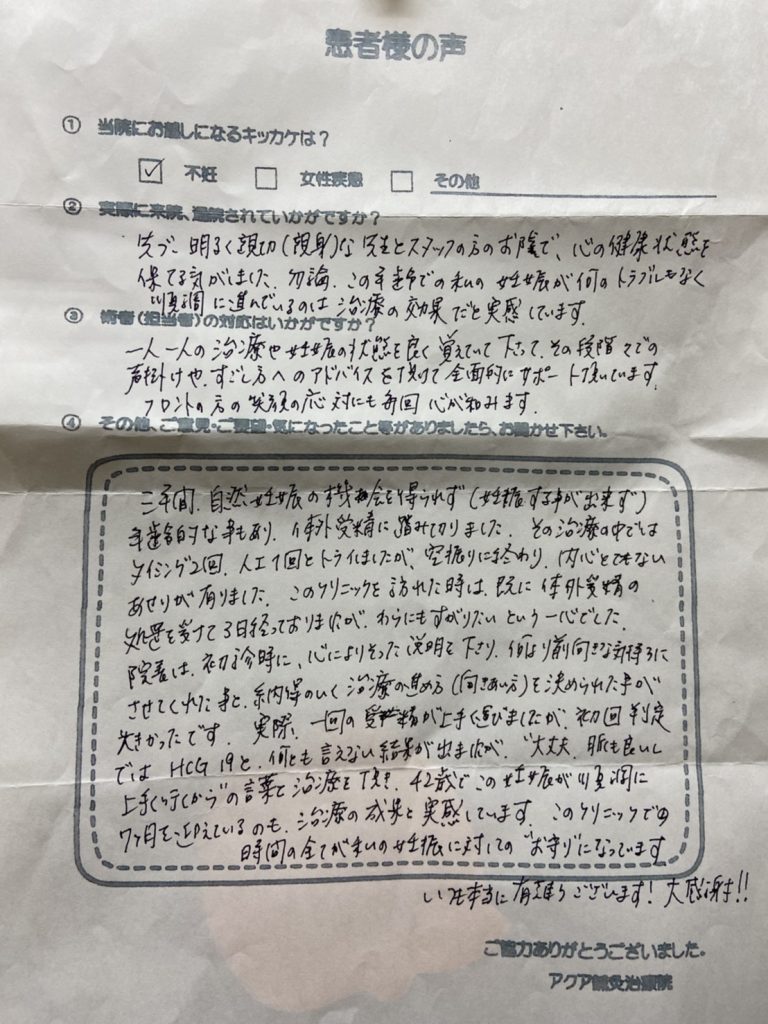 患者様の声
① 当院にお越しになるキッカケは?
☑ 不妊 □ 女性疾患 □ その他
② 実際に来院、通院されていかがですか?
先づ、明るく親切(親身)な先生とスタッフの方のお陰で、心の健康状態を
保てる気がしました。勿論、この年齢での私の妊娠が何のトラブルもなく
順調に進んでいるのは治療の効果だと実感しています。
③ 術者(担当者)の対応はいかがですか?
一人一人の治療や妊娠の状態を良く覚えていて下さって、その段階々での
声掛けや、すごし方へのアドバイスを頂けて全面的にサポート頂いています。
フロントの方の笑顔の応対にも毎回心が和みます。
④ その他、ご意見・ご要望・気になったこと等がありましたら、お聞かせ下さい。
三年間、自然妊娠の機会を得られず(妊娠する事が出来ず)
年齢的な事もあり、体外受精に踏み切りました。その治療の中では
タイミング2回、人工1回とトライしましたが、空振りに終わり、内心とてもない
あせりが有りました。このクリニックを訪れた時は、既に体外受精の
処置を受けて3日経っておりましたが、わらにもすがりたいという一心でした。
院長は、初診時に、心によりそった説明を下さり、何より前向きな気持ちに
させてくれた事と、納得のいく治療の進め方(向きあい方)を決められた事が
大きかったです。実際、一回の受精が上手く運びましたが、初回判定
では HCG 19と、何とも言えない結果が出ましたが、"大丈夫、脈も良いし
上手く行くから"の言葉と治療を頂き、42歳でこの妊娠が順調に
7ヶ月を迎えているのも、治療の成果と実感しています。このクリニックでの
時間の全てが私の妊娠に対しての"お守り"になっています
いつも本当に有難うございます! 大感謝!!
ご協力ありがとうございました。
アクア鍼灸治療院